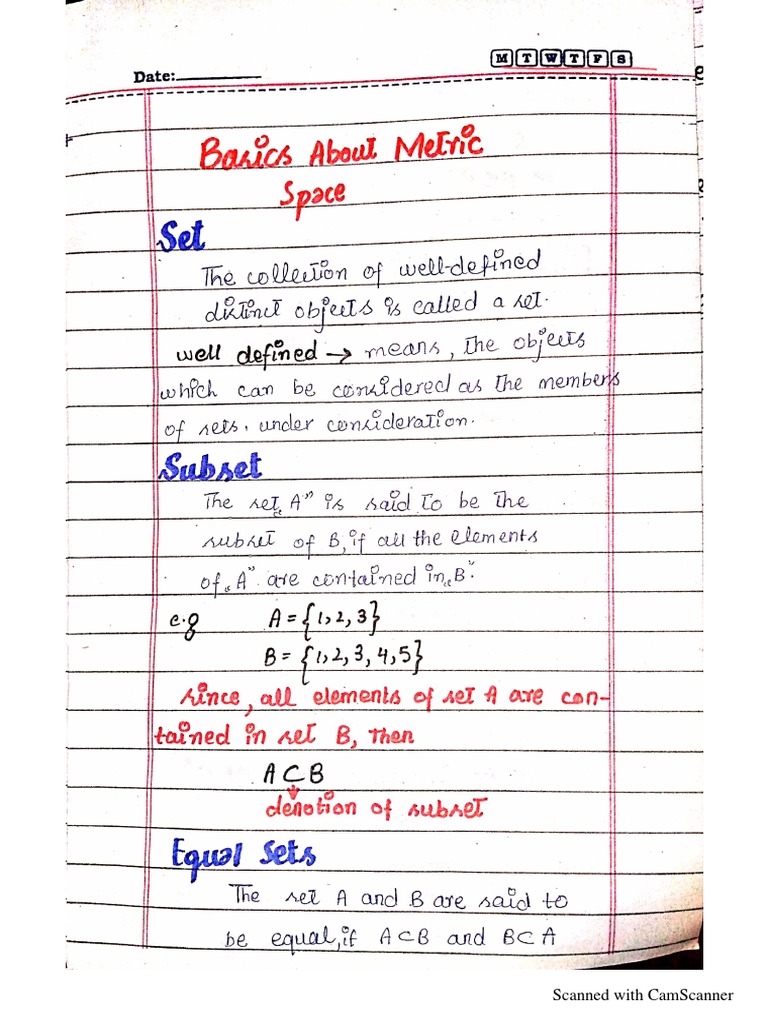 M T W T F S
Date:
Basics About Metric
Space
Set
The collection of well-defined
distinct objects is called a set.
well defined → means, the objects
which can be considered as the members
of sets, under consideration.
Subset
The set "A" is said to be the
subset of B, if all the elements
of "A" are contained in "B".
e.g A = {1, 2, 3}
B = {1, 2, 3, 4, 5}
since, all elements of set A are con-
tained in set B, then
A ⊂ B
denotion of subset
Equal Sets
The set A and B are said to
be equal, if A⊂B and B⊂A
Scanned with CamScanner